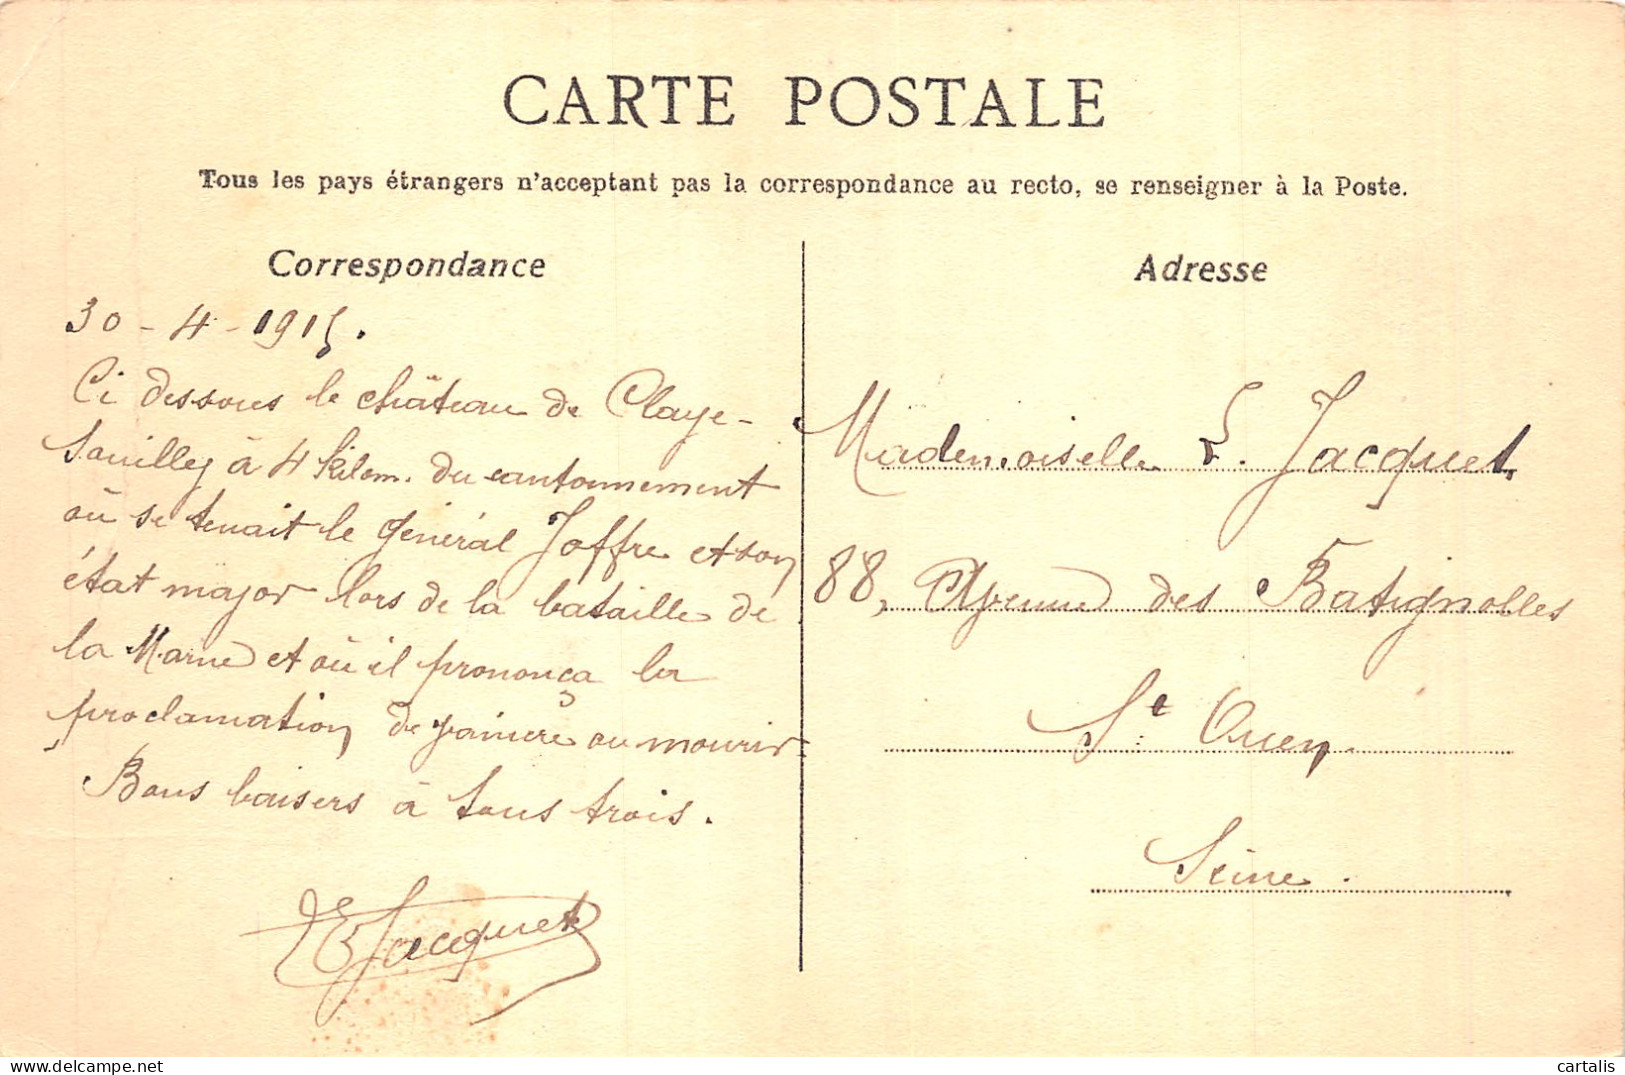 CARTE POSTALE
Tous les pays étrangers n'acceptant pas la correspondance au recto, se renseigner à la Poste.
Correspondance
30-4-1915.
Ci dessous le château de Claye-
Souilley à 4 kilom. du cantonnement
où se tenait le général Joffre et son
état major lors de la bataille de
la Marne et où il prononça la
proclamation de vaincre ou mourir
Bons baisers à tous trois.
E Jacquet
Adresse
Mademoiselle L. Jacquet
88, Avenue des Batignolles
St Ouen
Seine.
cartalis